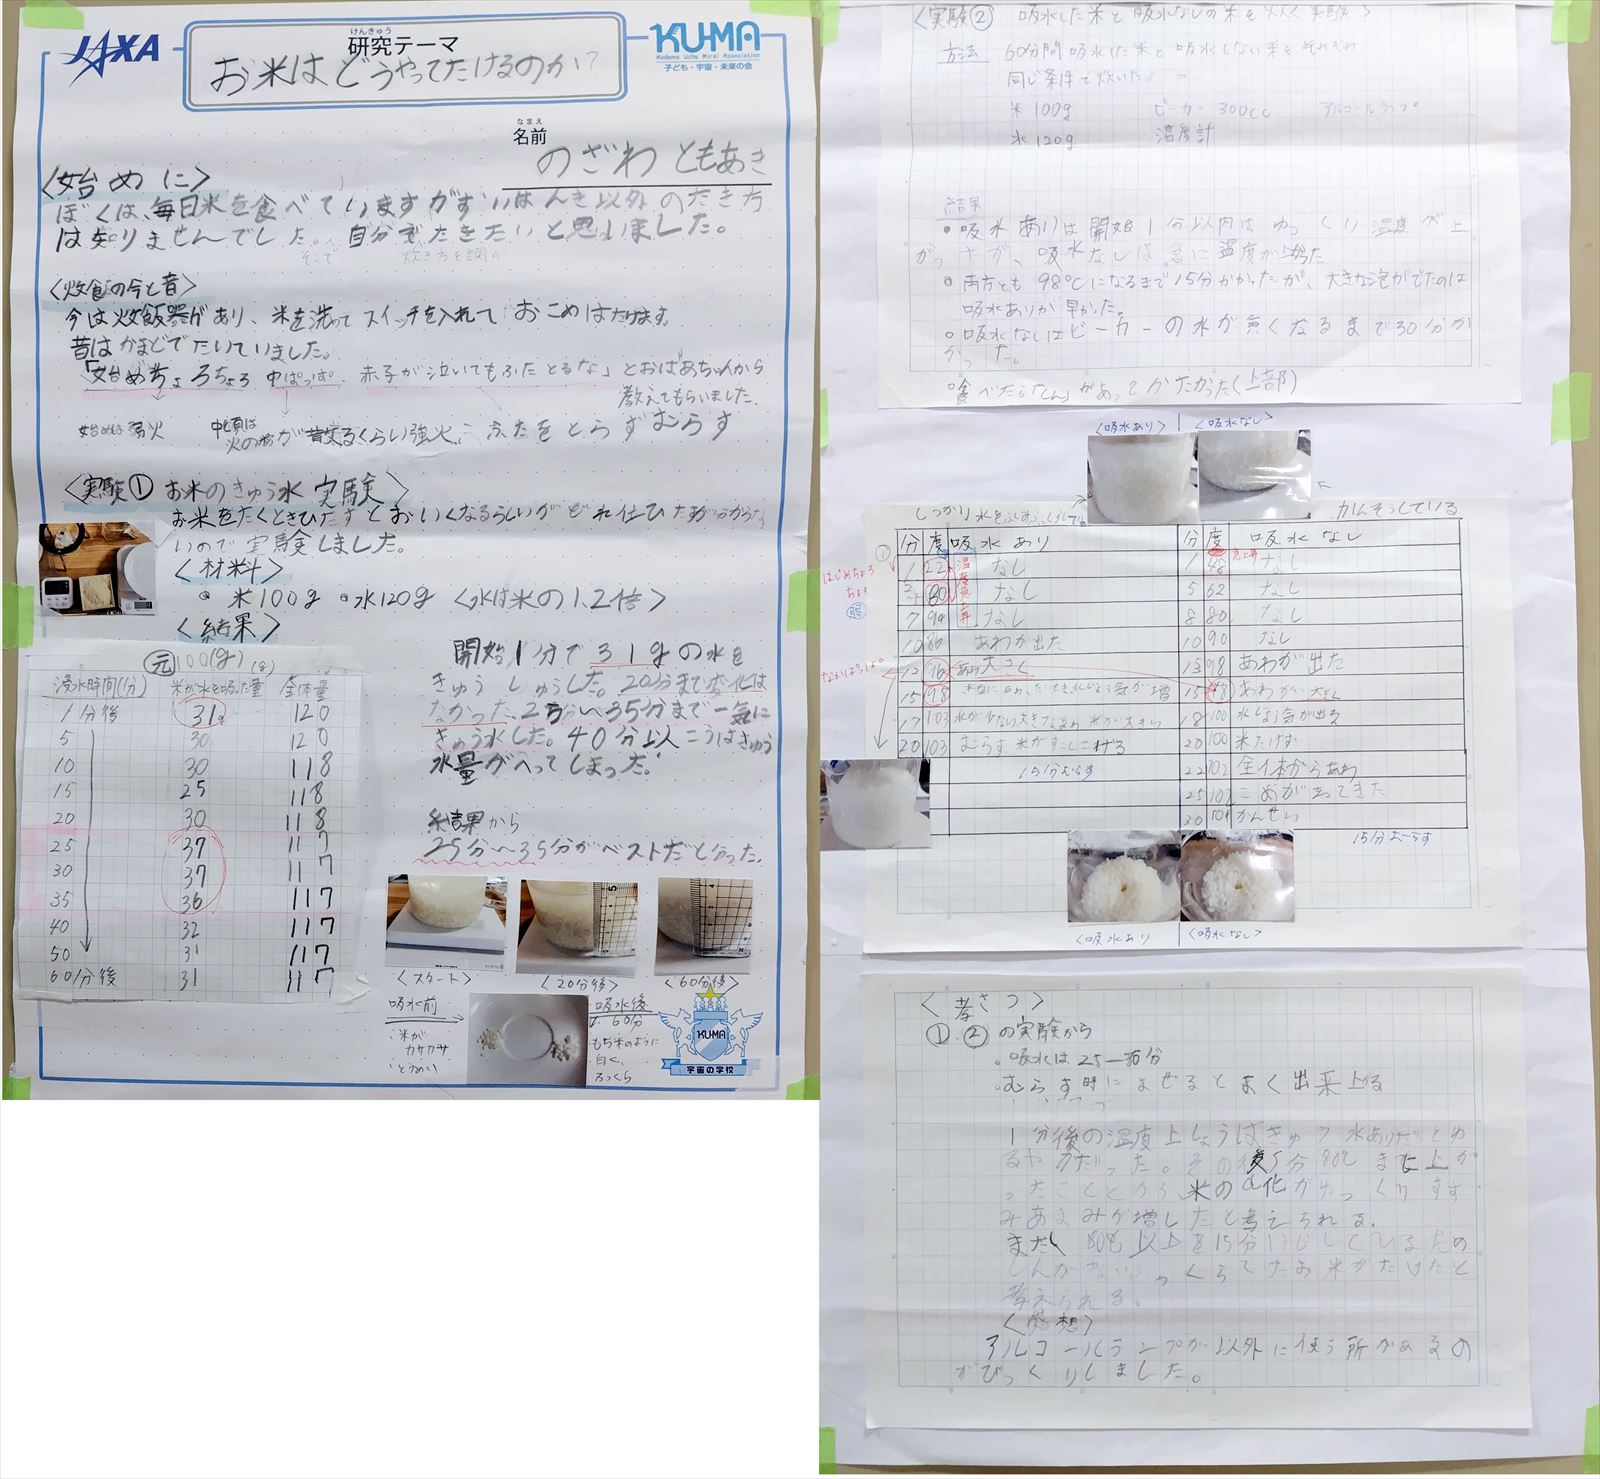 JAXA
けんきゅう
研究テーマ
お米はどうやってたけるのか?
KU-MA
Kodomo Uchu Mirai Association
子ども・宇宙・未来の会
なまえ
名前
のざわ ともあき
<始めに>
ぼくは、毎日米を食べていますがすいはんき以外のたき方
は知りませんでした。自分でたきたいと思いました。
そこで
炊き方を調べ
<炊飯の今と昔>
今は炊飯器があり、米を洗ってスイッチを入れておこめはたけます。
昔はかまどでたいていました。
「始めちょろちょろ 中ぱっぱ 赤子が泣いてもふたとるな」とおばあちゃんから
教えてもらいました。
始めは弱火
中頃は
強火
ふたをとらずむらす
<実験① お米のきゅう水実験>
お米をたくときひたすとおいしくなるらしいがどれ位ひたすか分からな
いので実験しました。
<材料>
・米100g ・水120g <水は米の1.2倍>
<結果>
元100(g) (g)
浸水時間(分) 米が水を吸った量 全体量
1分後 31g 120
5 30 120
10 30 118
15 25 118
20 30 118
25 37 117
30 37 117
35 36 117
40 32 117
50 31 117
60分後 31 117
開始1分で31gの水を
きゅうしゅうした。20分まで変化は
なかった。25分〜35分まで一気に
きゅう水した。40分以こうはきゅう
水量がへってしまった。
結果から
25分〜35分がベストだと分った。
<スタート>
<20分後>
<60分後>
吸水前
米が
カサカサ
とうめい
吸水後
60分
もち米のように
白く、
ふっくら
KU-MA
宇宙の学校
<実験② 吸水した米と吸水なしの米を炊く実験>
方法 60分間吸水した米と吸水しない米をそれぞれ
同じ条件で炊いた
米100g ビーカー300cc アルコールランプ
水120g 温度計
結果
・吸水ありは開始1分以内はゆっくり温度が上
がったが、吸水なしは急に温度が上がった
・両方とも98℃になるまで15分かかったが、大きな泡がでたのは
吸水ありが早かった。
・吸水なしはビーカーの水が無くなるまで30分か
かった。
食べたら「しん」があってかたかった(上部)
<吸水あり>
<吸水なし>
かんそうしている
分 度 吸水あり
1 22 なし
80 なし
7 94 なし
10 86 あわが出た
13 96 あわ大きく
15 98
17 103
20 103 むらす 米がすこしこげる
15分むらす
はじめちょろ
ちょろ
弱
なかぱっぱ
温度急上昇
分 度 吸水なし
1 48 なし
5 62 なし
8 80 なし
10 90 なし
13 98 あわが出た
15 98 あわが大きく
18 100 水じょう気が出る
20 100
22 102 全体からあわ
25 102 こめが出てきた
30 104 かんせい
15分むらす
<吸水あり>
<吸水なし>
<考さつ>
①②の実験から
・吸水は25〜35分
・むらす時にまぜるとうまく出来上る
1分後の温度上しょうはきゅう水ありだとゆ
るやかだった。その後5分80℃まで上が
ったことから、米のα化がゆっくりすす
みあまみが増したと考えられる。
また、80℃以上を15分いじしているため
しんがないふっくらしたお米がたけたと
考えられる。
<感想>
アルコールランプが以外に使う所があるの
がびっくりしました。